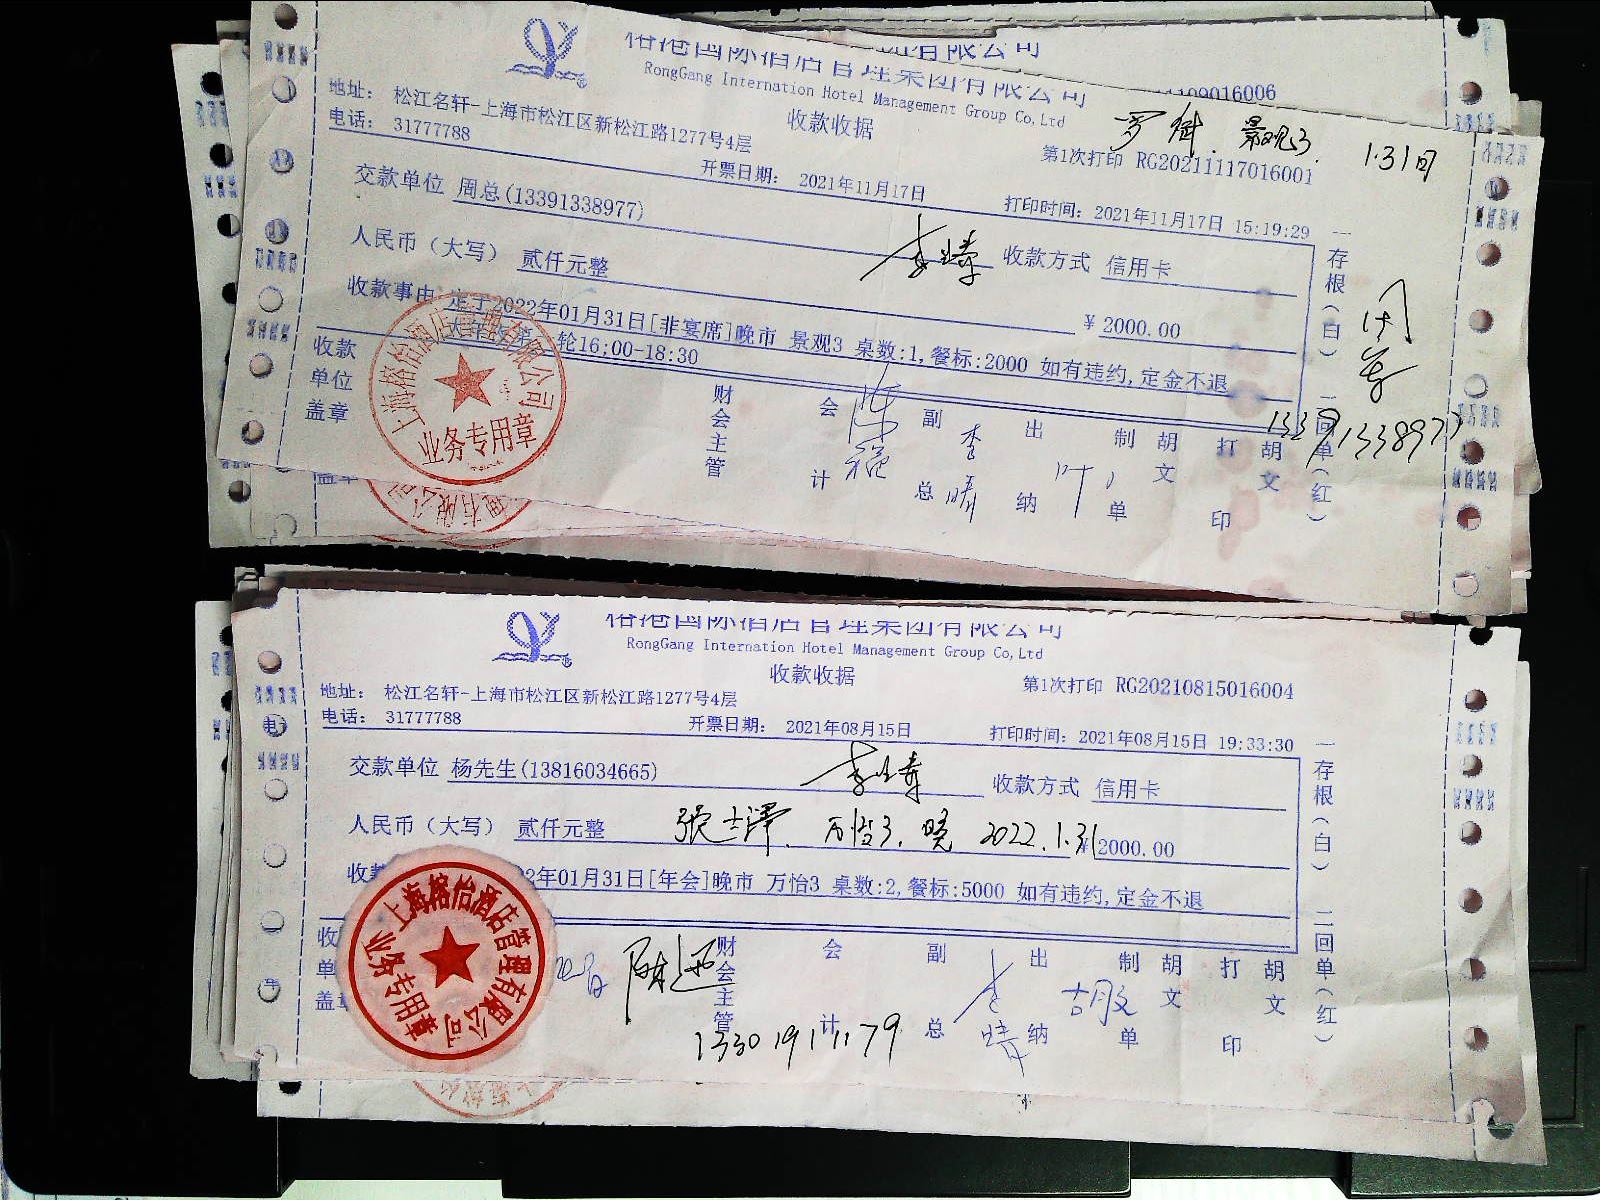 榕港国际酒店管理集团有限公司
RongGang Internation Hotel Management Group Co,Ltd
收款收据
地址： 松江名轩-上海市松江区新松江路1277号4层
电话： 31777788
景观3. 1.31
第1次打印 RG20211117016001
开票日期： 2021年11月17日
打印时间：2021年11月17日 15:19:29
交款单位 周总(13391338977)
收款方式 信用卡
人民币（大写） 贰仟元整
￥2000.00
收款事由 定于2022年01月31日[非宴席]晚市 景观3 桌数:1,餐标:2000 如有违约,定金不退
轮16;00-18:30
收款单位盖章
上海榕怡酒店管理有限公司
业务专用章
财会主管 会计 副总 李晴 出纳 叶 制单 胡文 打印 胡文
一存根（白） 二回单（红）
13391338977
榕港国际酒店管理集团有限公司
RongGang Internation Hotel Management Group Co,Ltd
收款收据
地址： 松江名轩-上海市松江区新松江路1277号4层
电话： 31777788
第1次打印 RG20210815016004
开票日期： 2021年08月15日
打印时间：2021年08月15日 19:33:30
交款单位 杨先生(13816034665)
收款方式 信用卡
人民币（大写） 贰仟元整
张兰泽. 万怡3. 晚 2022.1.31
￥2000.00
收 22年01月31日[年会]晚市 万怡3 桌数:2,餐标:5000 如有违约,定金不退
收 单 盖
上海榕怡酒店管理有限公司
业务专用章
13301911179
财会主管 会计 副总 李晴 出纳 胡文 制单 胡文 打印 胡文
一存根（白） 二回单（红）